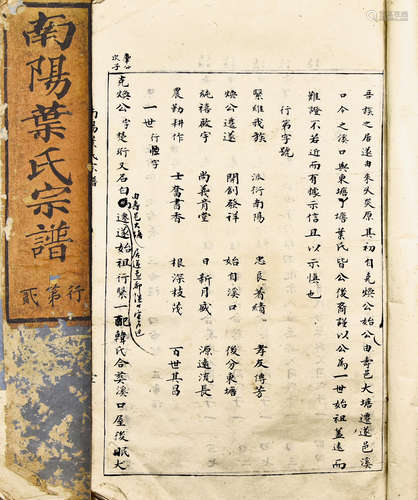 南陽葉氏宗譜
行第貳
吾族之居遂由來久矣原其初自克煥公始公由壽邑大塘遷遂邑溪
口今之溪口與東塘丁塘葉氏皆公後裔謹以公為一世始祖蓋遠而
難證不若近而有據示信且以示慎也
行第字號
繫維我族 派衍南陽 忠良著績 孝友傳芳
煥公遷遂 開創發祥 始自溪口 後分東塘
純禧啟宇 尚義肯堂 日新月盛 源遠流長
農勤耕作 士奮書香 根深枝茂 百世其昌
一世 行恆字
次子
克煥公 字 行 又名 遷遂始祖行繫一配韓氏合葬溪口屋後眠犬